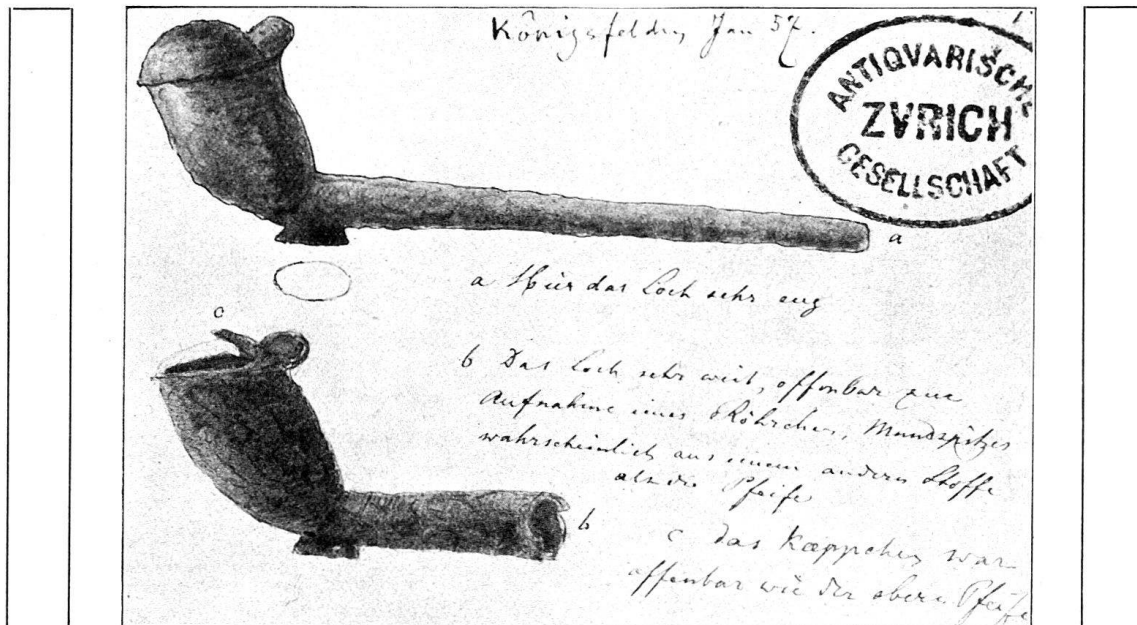 Königsfelden, Jan 57.
ANTIQVARISCHE
ZVRICH
GESELLSCHAFT
a
a Hier das Loch sehr eng
c
b Das Loch sehr weit, offenbar zur
Aufnahme eines Röhrchens, Mundspitzes
wahrscheinlich aus einem andern Stoffe
als die Pfeife
b
c das Kæppchen war
offenbar wie der obern Pfeife